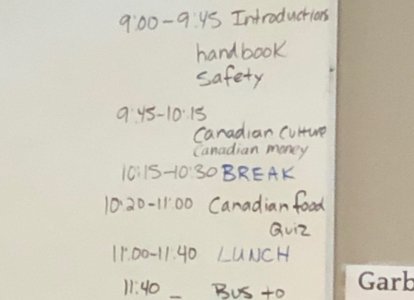 9:00-9:45 Introductions
handbook
Safety
9:45-10:15
Canadian Culture
Canadian money
10:15-10:30 BREAK
10:20-11:00 Canadian food
Quiz
11:00-11:40 LUNCH
11:40 - Bus to
Garb